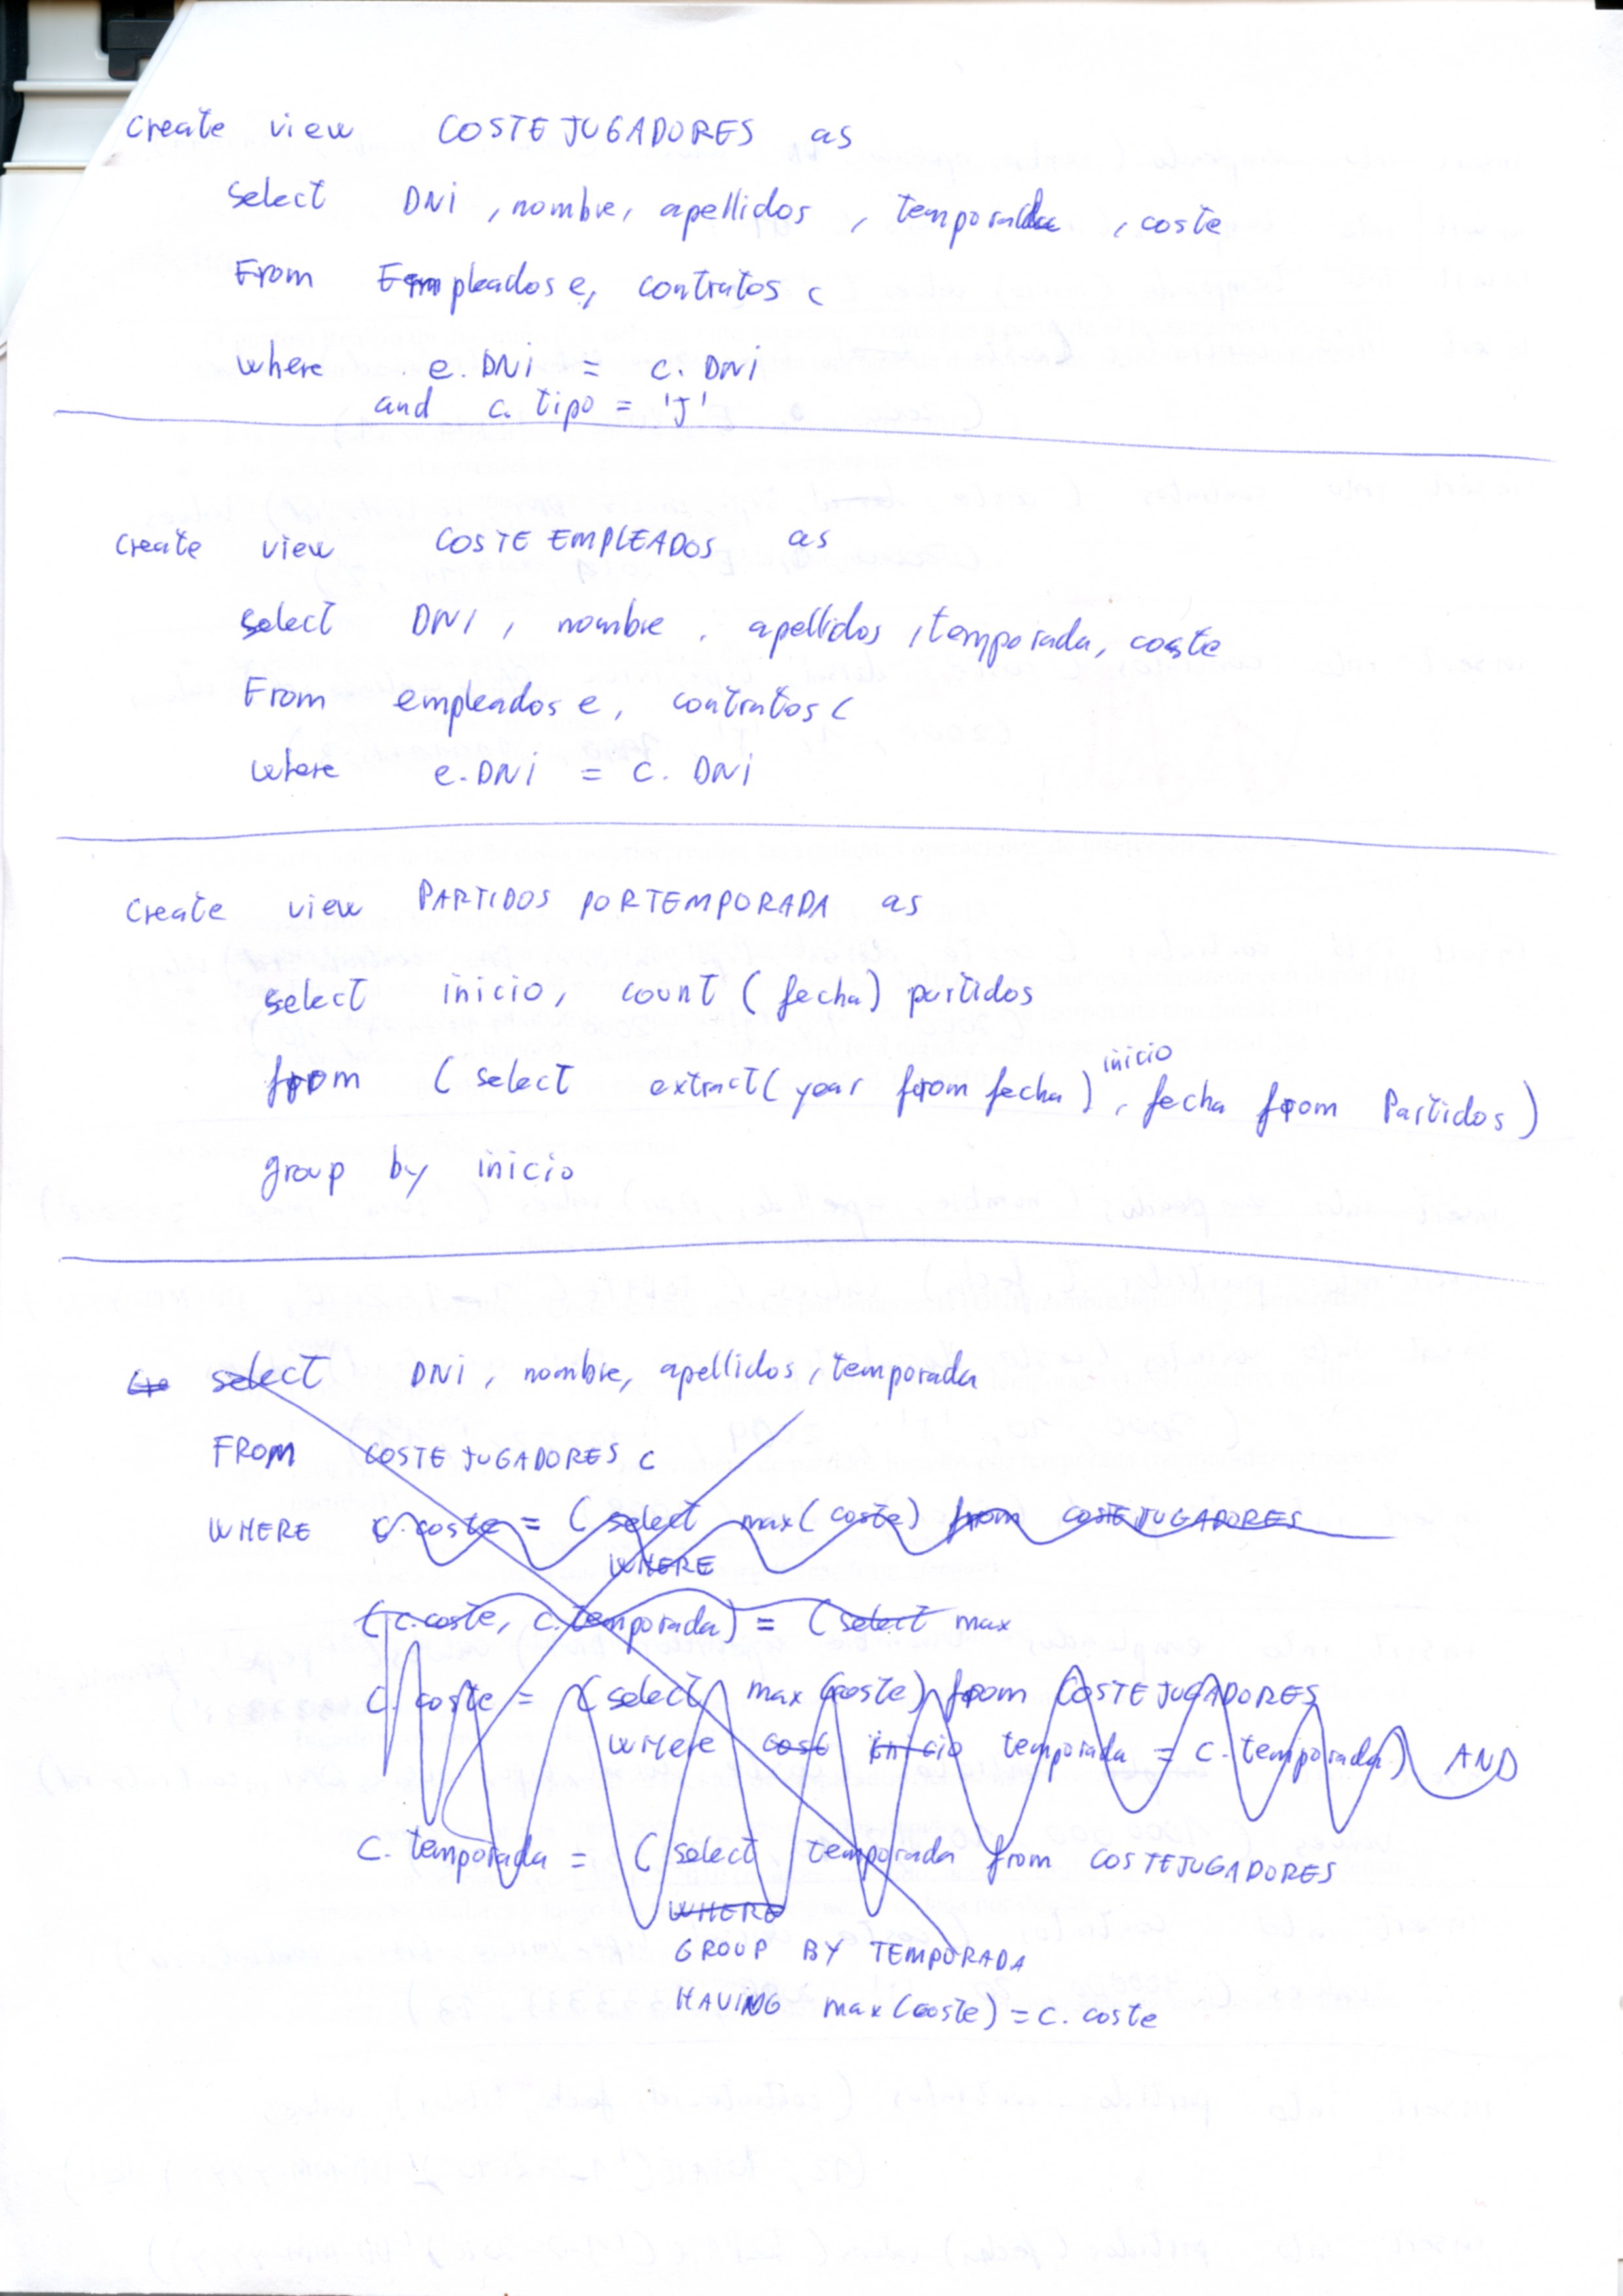 Create view COSTEJUGADORES as
select DNI, nombre, apellidos, temporada, coste
From Empleados e, contratos c
where e.DNI = c.DNI
and c.tipo = 'J'
Create view COSTEEMPLEADOS as
select DNI, nombre, apellidos, temporada, coste
From empleados e, contratos c
where e.DNI = c.DNI
Create view PARTIDOSPORTEMPORADA as
select inicio, count(fecha) partidos
from (select extract(year from fecha) inicio, fecha from Partidos)
group by inicio
Cre select DNI, nombre, apellidos, temporada
FROM COSTEJUGADORES c
WHERE c.coste = (select max(coste) from COSTEJUGADORES
WHERE
(c.coste, c.temporada) = (select max
c.coste = (select max(coste) from COSTEJUGADORES
where cost inicio temporada = c.temporada) AND
c.temporada = (select temporada from COSTEJUGADORES
WHERE
GROUP BY TEMPORADA
HAVING max(coste) = c.coste